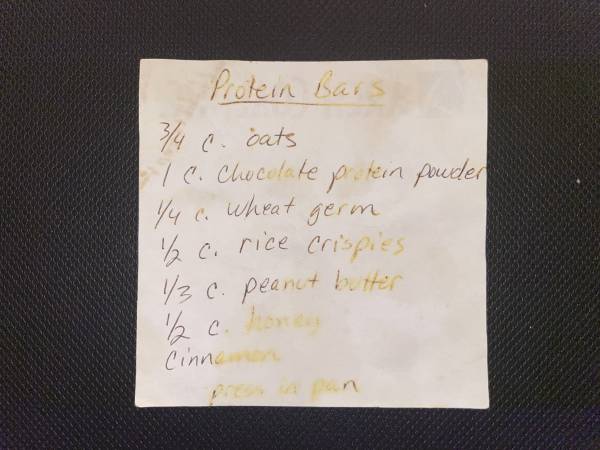 Protein Bars
3/4 c. oats
1 c. chocolate protein powder
1/4 c. wheat germ
1/2 c. rice crispies
1/3 c. peanut butter
1/2 c. honey
cinnamon
press in pan